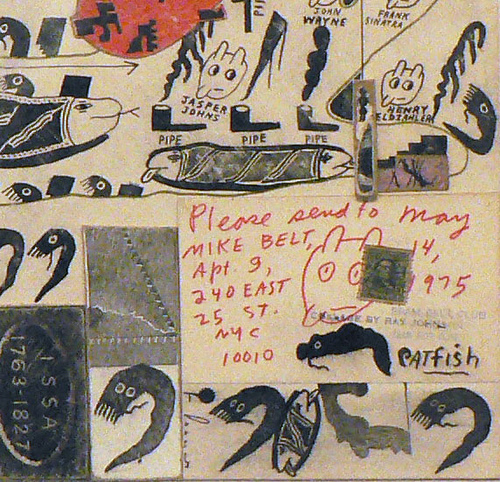 PIP
JOHN
WAYNE
FRANK
SINATRA
JASPER
JOHNS
HENRY
ELDZAHLER
PIPE
PIPE
PIPE
Please send to may
MIKE BELT, 14,
Apt. 9, 1975
240 EAST
25 ST.
NYC
10010
COLLAGE BY RAY JOHNS
PATFISH
ISSA
1763-1827